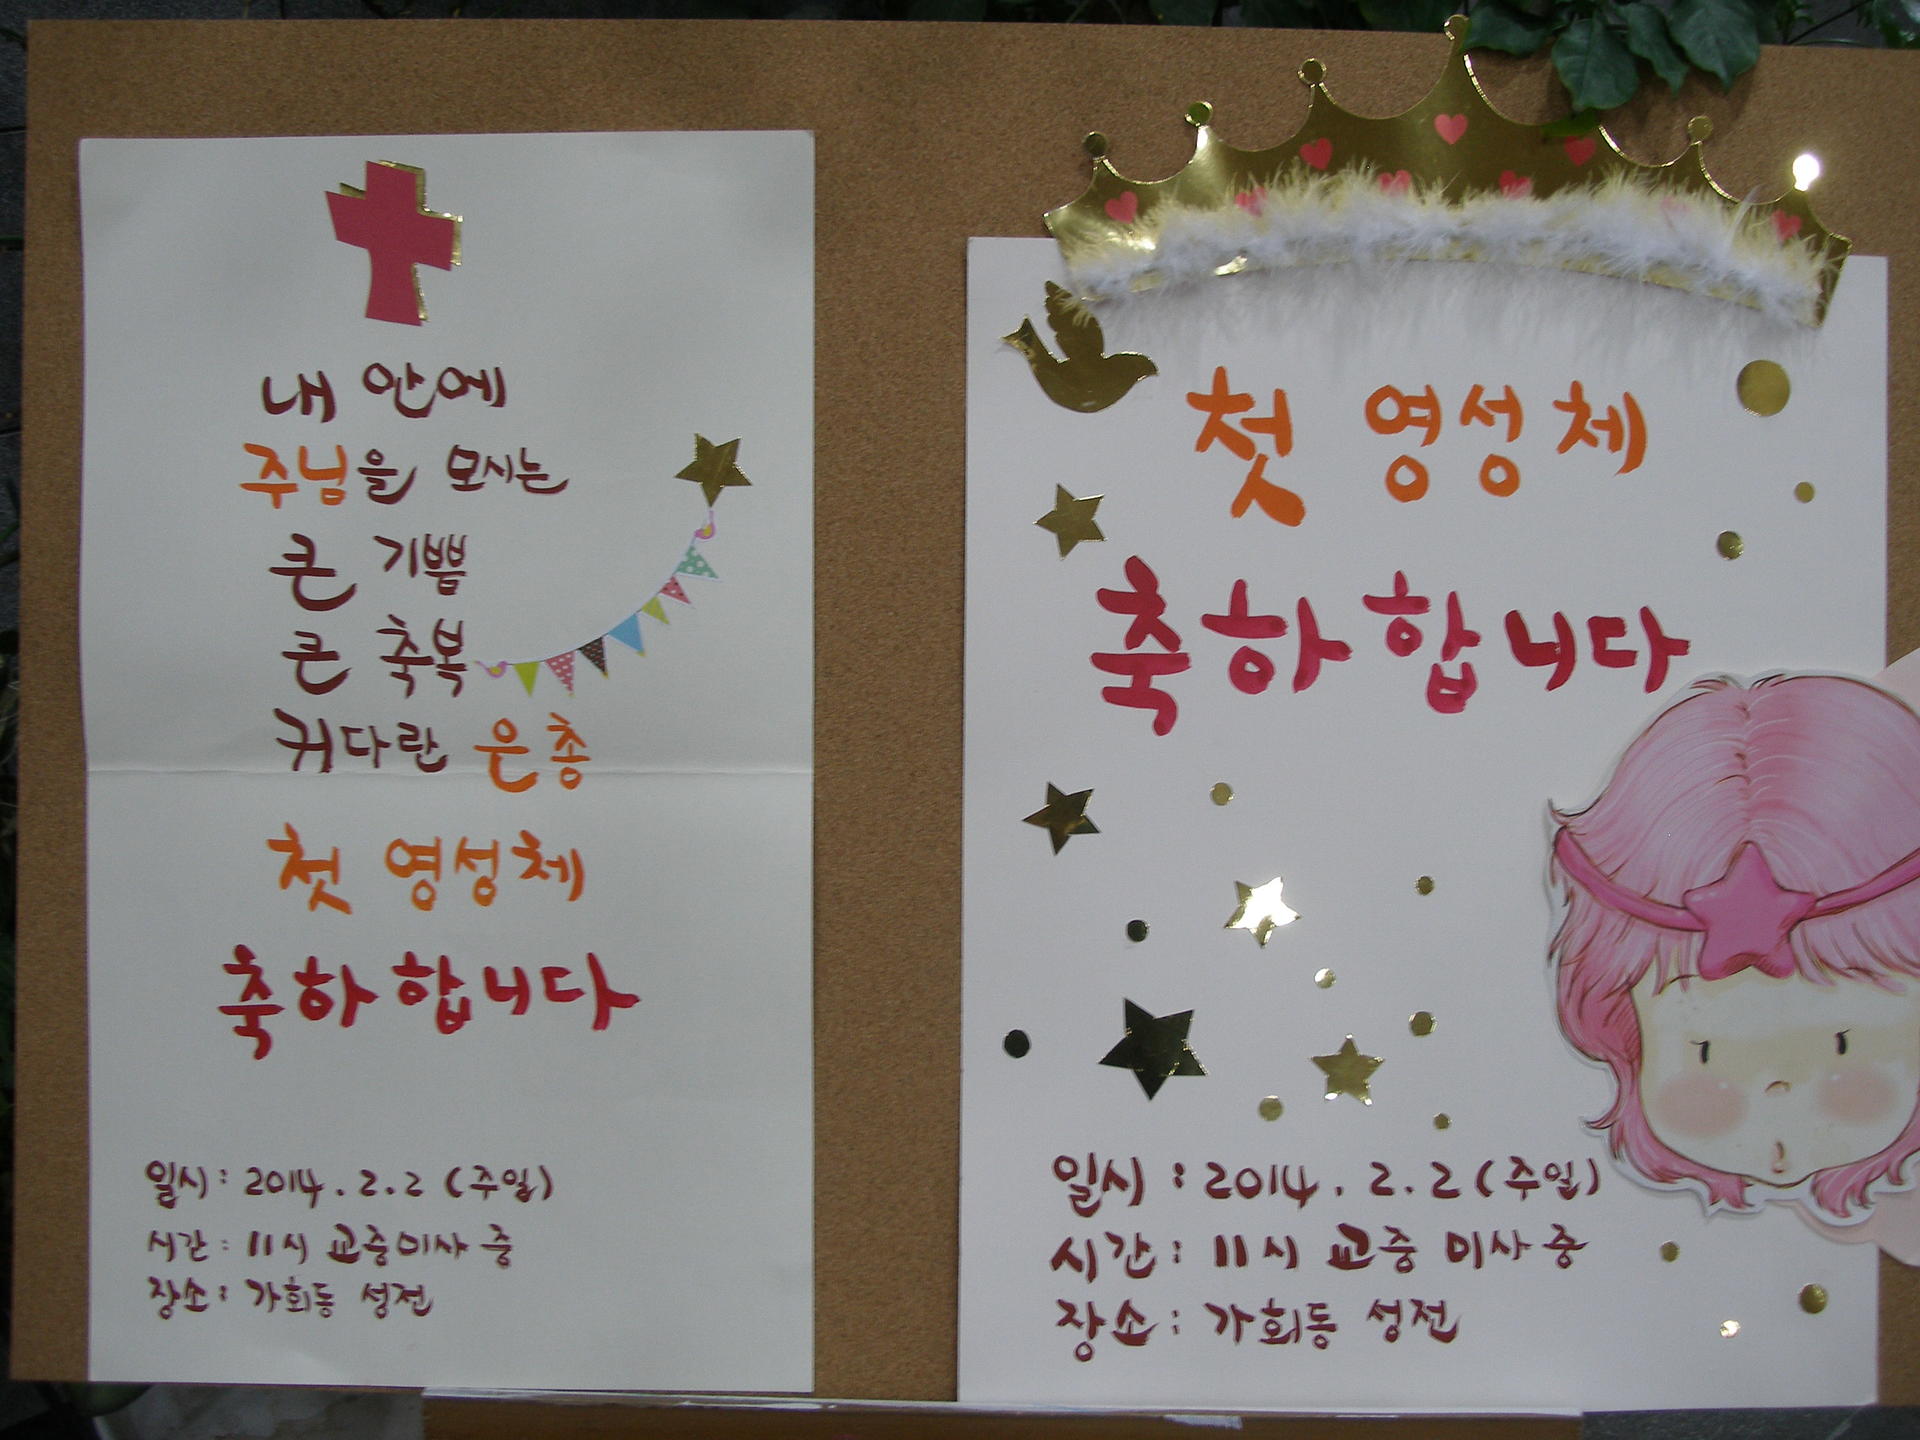 내 안에
주님을 모시는
큰 기쁨
큰 축복
커다란 은총
첫 영성체
축하합니다
일시 : 2014. 2. 2 (주일)
시간 : 11시 교중미사 중
장소 : 가회동 성전
첫 영성체
축하합니다
일시 : 2014. 2. 2 (주일)
시간 : 11시 교중 미사 중
장소 : 가회동 성전